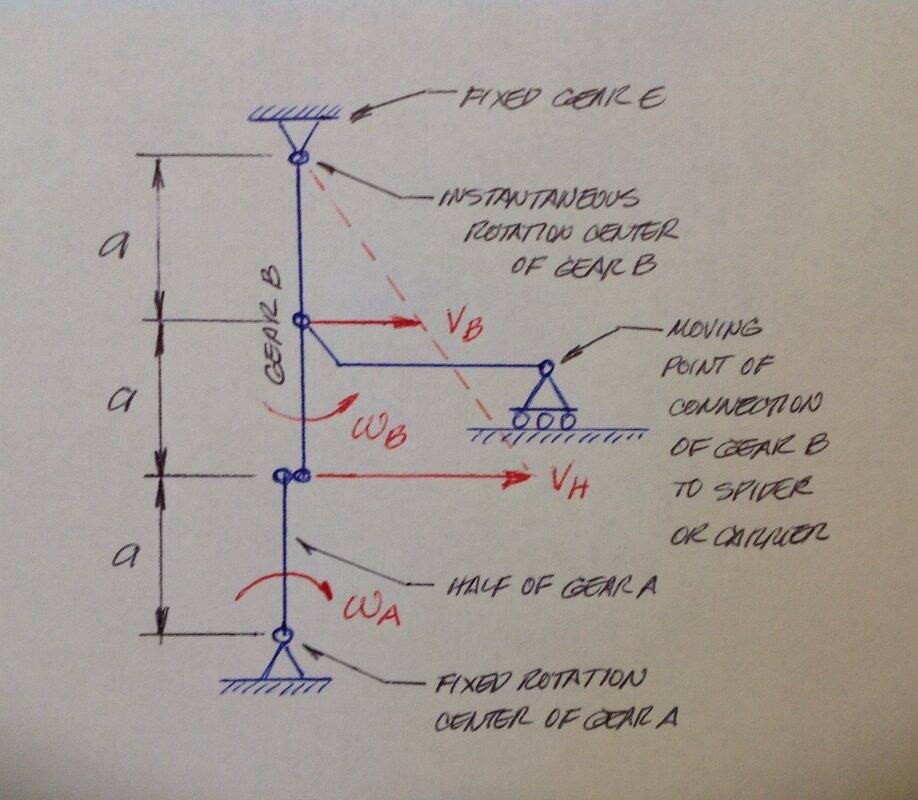 FIXED GEAR E
INSTANTANEOUS
ROTATION CENTER
OF GEAR B
a
GEAR B
V_B
MOVING
POINT OF
CONNECTION
OF GEAR B
TO SPIDER
OR CARRIER
a
ω_B
V_H
a
HALF OF GEAR A
ω_A
FIXED ROTATION
CENTER OF GEAR A